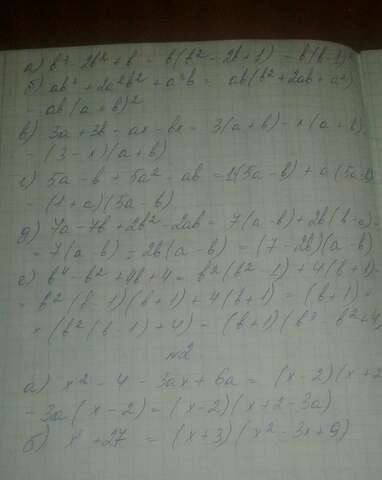 а) b³ - 2b² + b = b(b² - 2b + 1) = b(b-1)²
б) ab³ + 2a²b² + a³b = ab(b² + 2ab + a²)
= ab(a+b)²
в) 3a + 3b - ax - bx = 3(a+b) - x(a+b)
= (3-x)(a+b)
г) 5a - b + 5a² - ab = 1(5a-b) + a(5a-b)
= (1+a)(5a-b)
д) 7a - 7b + 2b² - 2ab = 7(a-b) + 2b(b-a) =
= 7(a-b) - 2b(a-b) = (7-2b)(a-b)
е) b⁴ - b² + 4b + 4 = b²(b²-1) + 4(b+1) =
= b²(b-1)(b+1) + 4(b+1) = (b+1) ×
× (b²(b-1) + 4) = (b+1)(b³ - b² + 4)
№2
а) x² - 4 - 3ax + 6a = (x-2)(x+2
- 3a(x-2) = (x-2)(x+2-3a)
б) x³ + 27 = (x+3)(x² - 3x + 9)